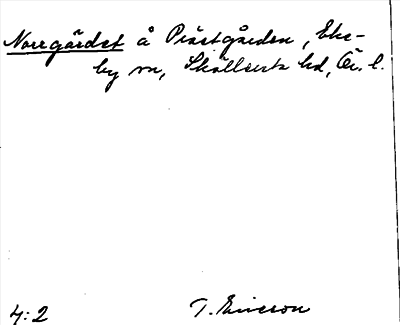 Norrgärdet å Prästgården, Eke-
by sn, Skyllersta hd, Ör. l.
4:2 T. Ericson